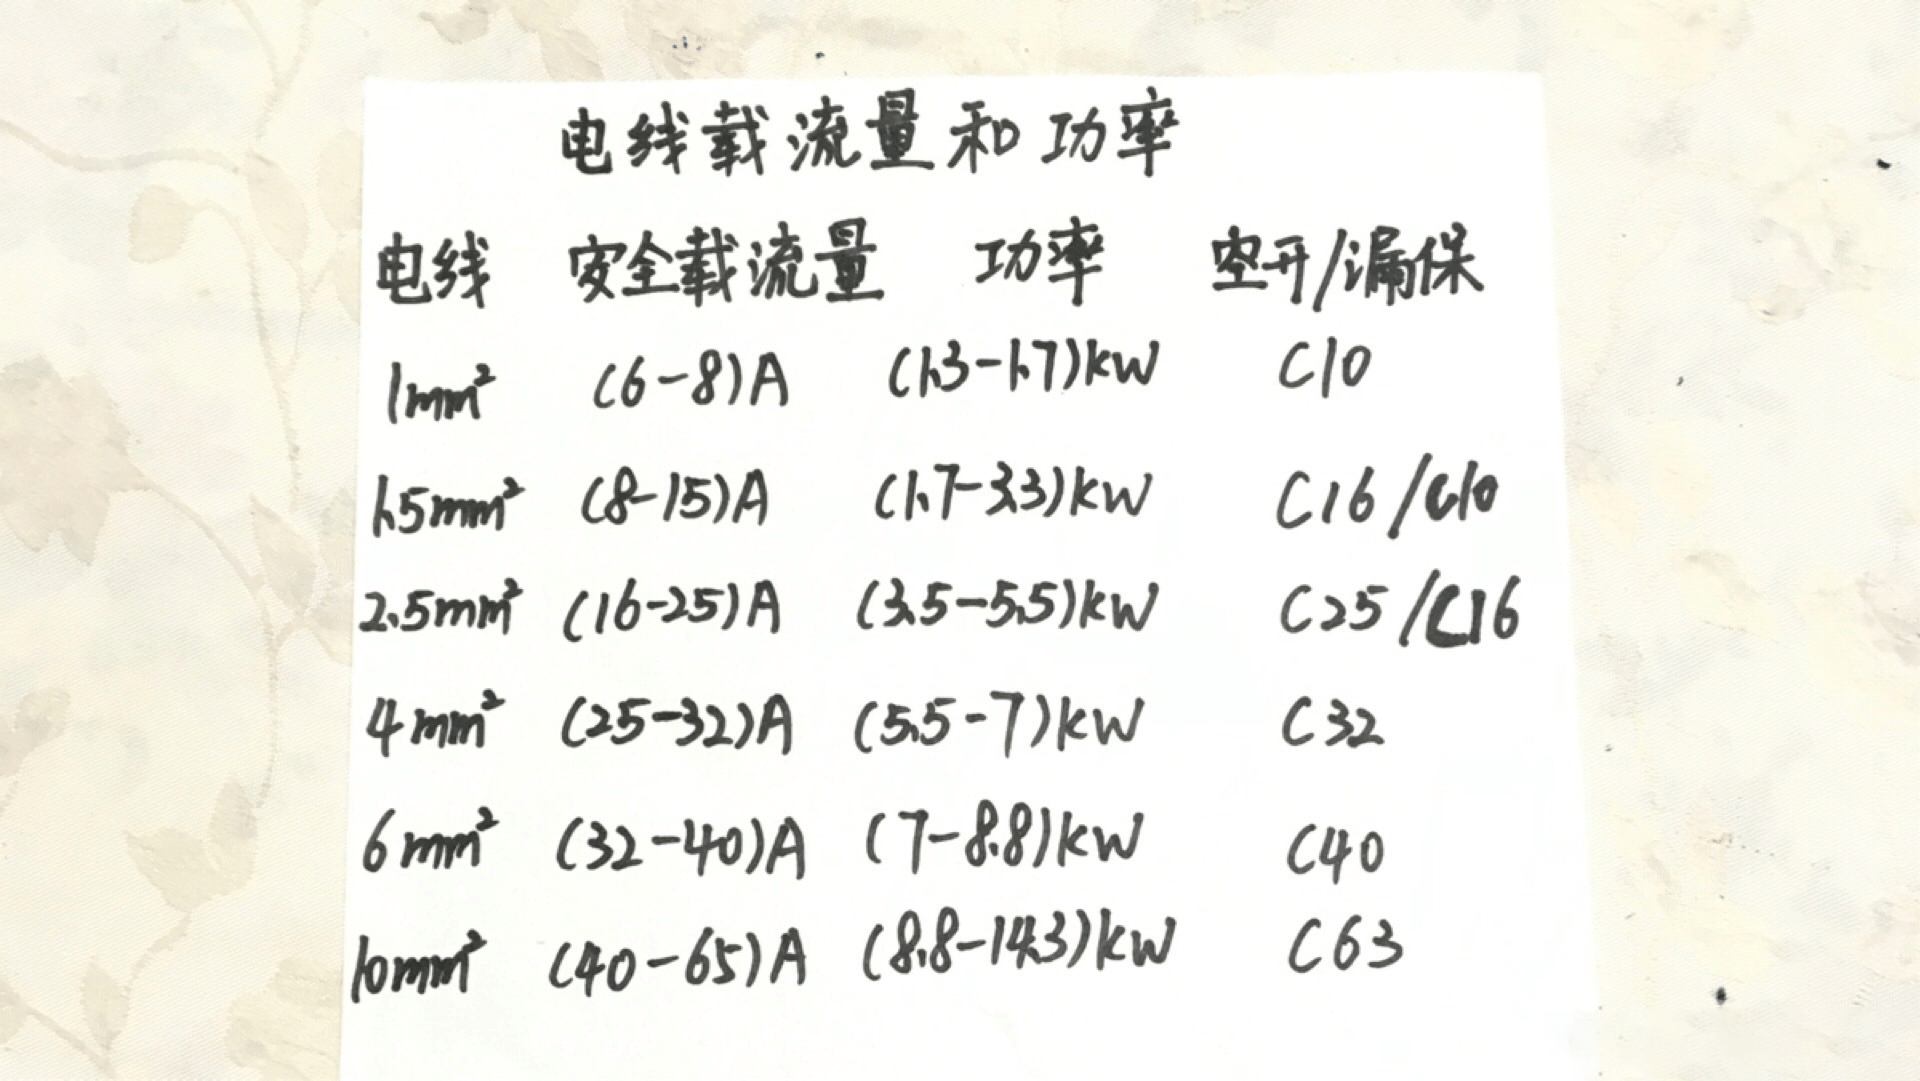 电线载流量和功率
电线 安全载流量 功率 空开/漏保
1mm² (6-8)A (1.3-1.7)kW C10
1.5mm² (8-15)A (1.7-3.3)kW C16/C10
2.5mm² (16-25)A (3.5-5.5)kW C25/C16
4mm² (25-32)A (5.5-7)kW C32
6mm² (32-40)A (7-8.8)kW C40
10mm² (40-65)A (8.8-14.3)kW C63